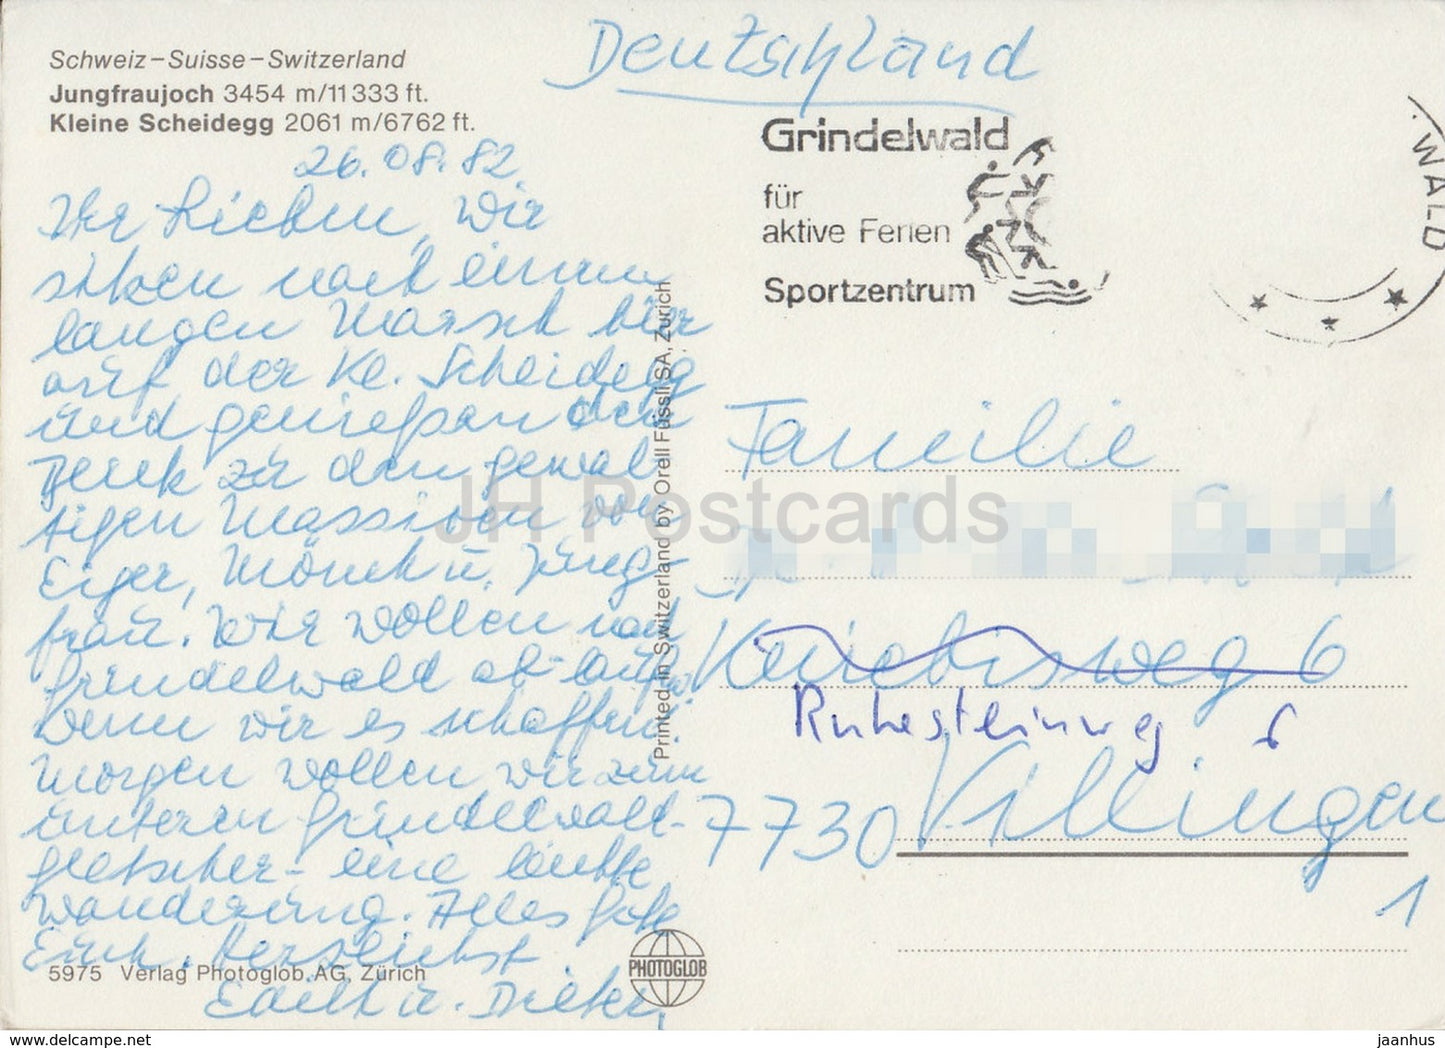 Schweiz – Suisse – Switzerland
Jungfraujoch 3454 m/11 333 ft.
Kleine Scheidegg 2061 m/6762 ft.
26.08.82
Ihr Lieben, wir
sitzen nach einem
langen Marsch hier
auf der Kl. Scheidegg
und genießen den
Blick zu den gewal
tigen Massiven von
Eiger, Mönch u. Jung-
frau. Wir wollen nach
Grindelwald ab-laufen
wenn wir es schaffen.
Morgen wollen wir zum
unteren Grindelwald-
gletscher - eine leichte
Wanderung. Alles Gute
Euch. Herzlichst
Edith u. Dieter
5975 Verlag Photoglob AG, Zürich
PHOTOGLOB
Printed in Switzerland by Orell Füssli SA, Zürich
Deutschland
Grindelwald
für
aktive Ferien
Sportzentrum
WALD
Familie
Kniebisweg 6
Ruhesteinweg 6
7730 Villingen
1
JH Postcards
www.delcampe.net
jaanhus